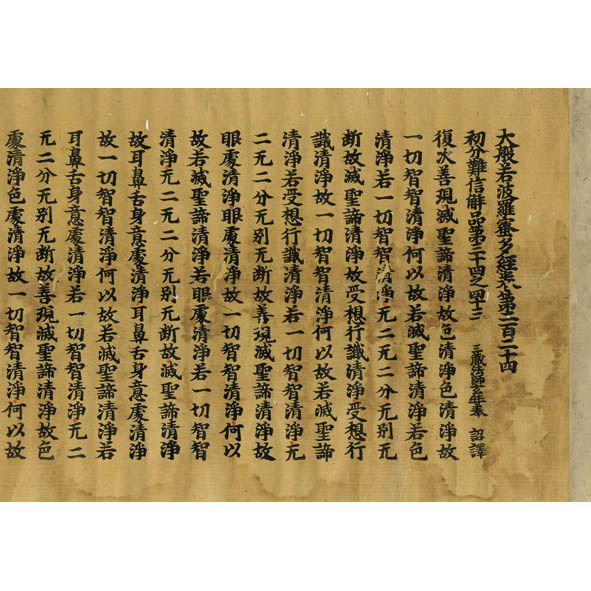 大般若波羅蜜多經卷第二百二十四
初分難信解品第三十四之四十三 三藏法師玄奘奉 詔譯
復次善現滅聖諦清淨故色清淨色清淨故
一切智智清淨何以故若滅聖諦清淨若色
清淨若一切智智清淨无二无二分无别无
断故滅聖諦清淨故受想行識清淨受想行
識清淨故一切智智清淨何以故若滅聖諦
清淨若受想行識清淨若一切智智清淨无
二无二分无别无断故善現滅聖諦清淨故
眼處清淨眼處清淨故一切智智清淨何以
故若滅聖諦清淨若眼處清淨若一切智智
清淨无二无二分无别无断故滅聖諦清淨
故耳鼻舌身意處清淨耳鼻舌身意處清淨
故一切智智清淨何以故若滅聖諦清淨若
耳鼻舌身意處清淨若一切智智清淨无二
无二分无别无断故善現滅聖諦清淨故色
處清淨色處清淨故一切智智清淨何以故